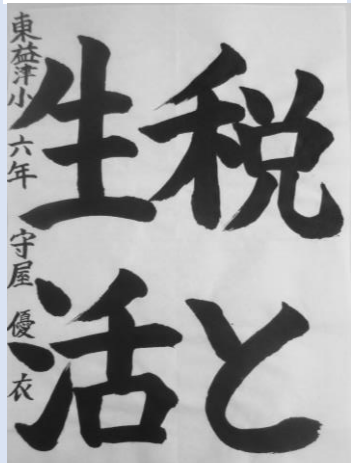 税と
生活
東益津小 六年 守屋 優衣